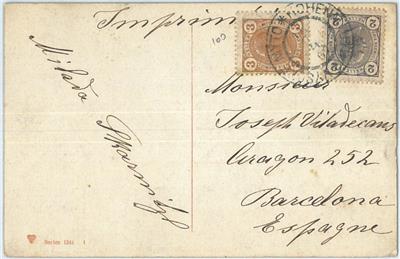 Imprimé
100
3 3
2 2
HOHENE
Milada
Monsieur
Joseph Viladecans
Aragon 252
Barcelona
Espagne
Series 1344 1